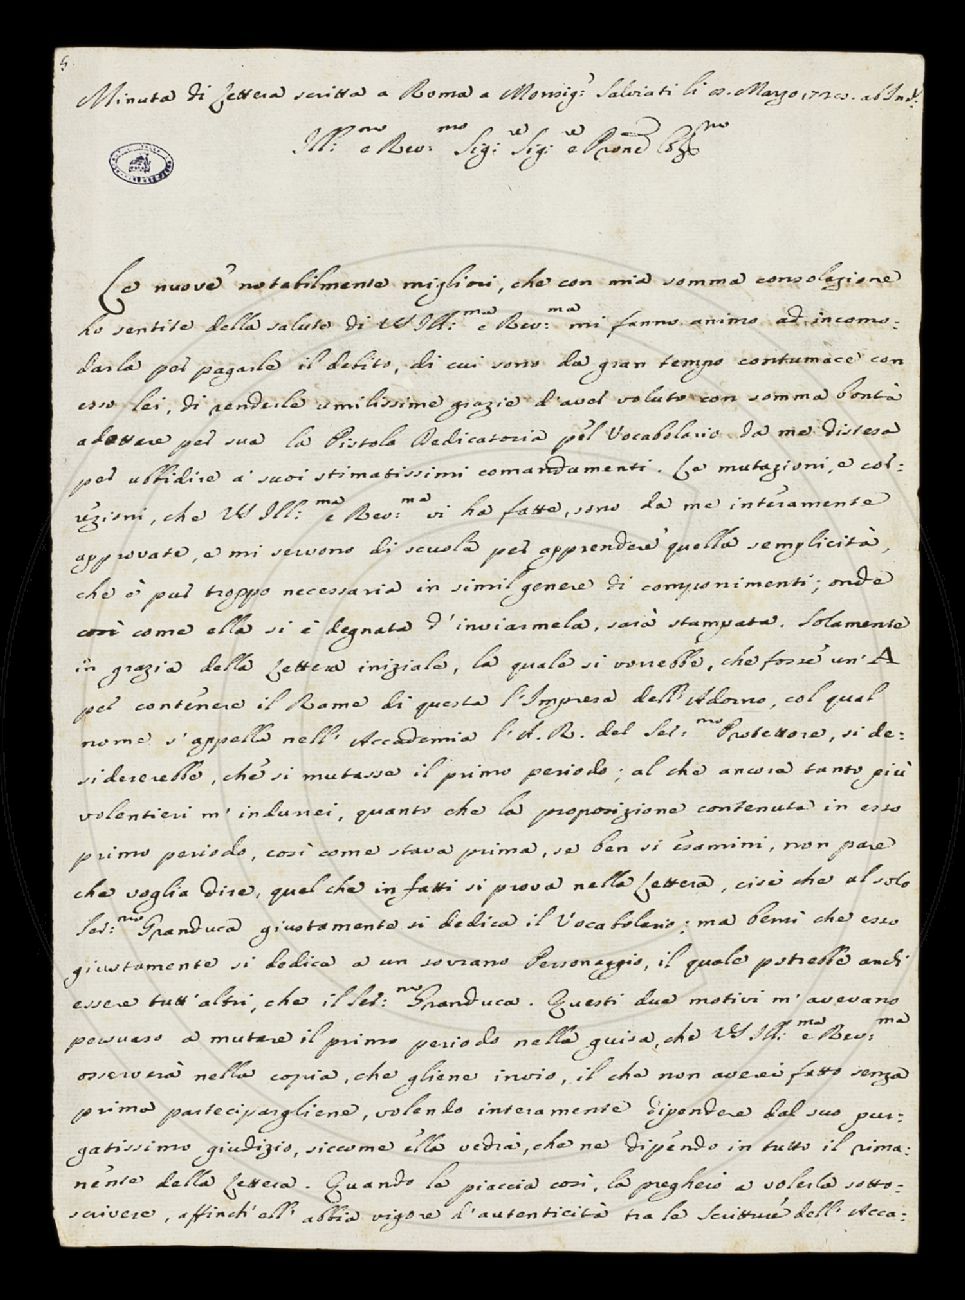 5
Minuta di Lettera scritta a Roma a Monsig.r Salviati li Marzo
Ill:mo e Rev:mo Sig:re Sig:re e Prone
Le nuove notabilmente migliori, che con mia somma consolazione
ho sentite della salute di VS Ill:ma e Rev:ma mi fanno animo ad incomo:
darla per pagarle il debito, di cui sono da gran tempo contumace con
esso lei, di renderle umilissime grazie d'aver voluto con somma bontà
adottare per sua la Pistola Dedicatoria pel Vocabolario da me distesa
per ubbidire a' suoi stimatissimi comandamenti. Le mutazioni, e cor:
rezioni, che VS Ill:ma e Rev:ma vi ha fatte, sono da me interamente
approvate, e mi servono di scuola per apprendere quella semplicità,
che è pur troppo necessaria in simil genere di componimenti; onde
così come ella si è degnata d'inviarmela, sarà stampata. Solamente
in grazia della Lettera iniziale, la quale si vorrebbe, che fosse un' A
per contenere il Rame di questa l'Impresa dell'Adorno, col qual
nome s'appella nell' Accademia l'A. R. del Ser:mo Protettore, si de:
sidererebbe, che si mutasse il primo periodo; al che ancora tanto più
volentieri m'indurrei, quanto che la proposizione contenuta in esso
primo periodo, così come stava prima, se ben si esamini, non pare
che voglia dire, quel che in fatti si prova nella Lettera, cioè che al solo
Ser:mo Granduca giustamente si dedica il Vocabolario; ma bensì che esso
giustamente si dedica a un sovrano Personaggio, il quale potrebbe anch
essere tutt'altri, che il Ser:mo Granduca. Questi due motivi m'avevano
persuaso a mutare il primo periodo nella guisa, che VS Ill:ma e Rev:ma
osserverà nella copia, che gliene invio, il che non averei fatto senza
prima parteciparglièlne, volendo interamente dipendere dal suo pur:
gatissimo giudizio, siccome ella vedrà, che ne dipendo in tutto il rima:
nente della Lettera. Quando le piaccia così, la pregherò a volerla sotto:
scrivere, affinch'ell' abbia vigore d'autenticità tra le Scritture dell' Acca: